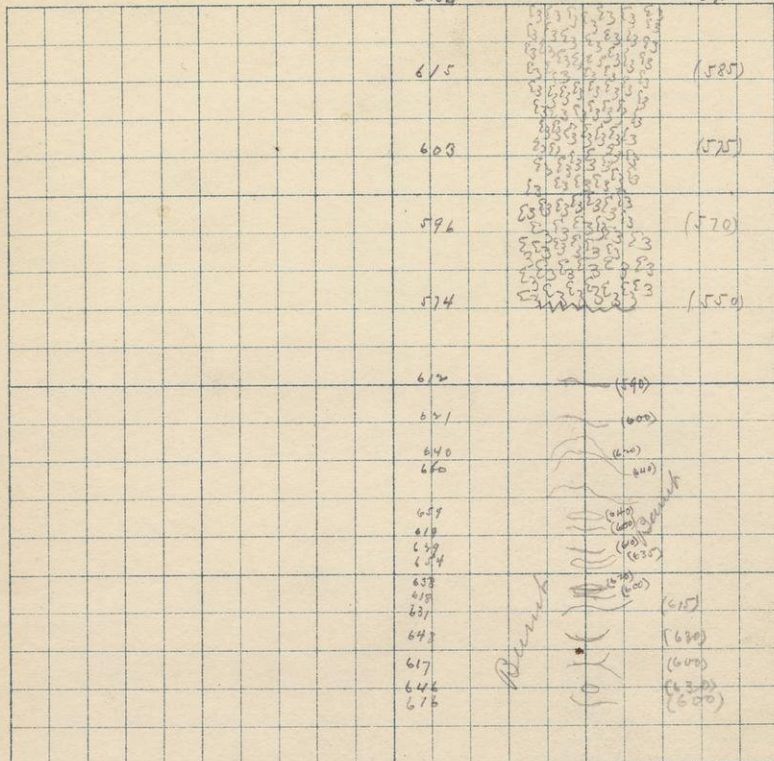 615 (585)
603 (575)
596 (570)
574 (550)
612 (590)
621 (600)
640 (620)
660 (640)
659 (640)
619 (600)
629 (610)
654 (635)
638 (620)
618 (600)
631 (615)
648 (630)
617 (600)
646 (630)
616 (600)
Burnt
Burnt